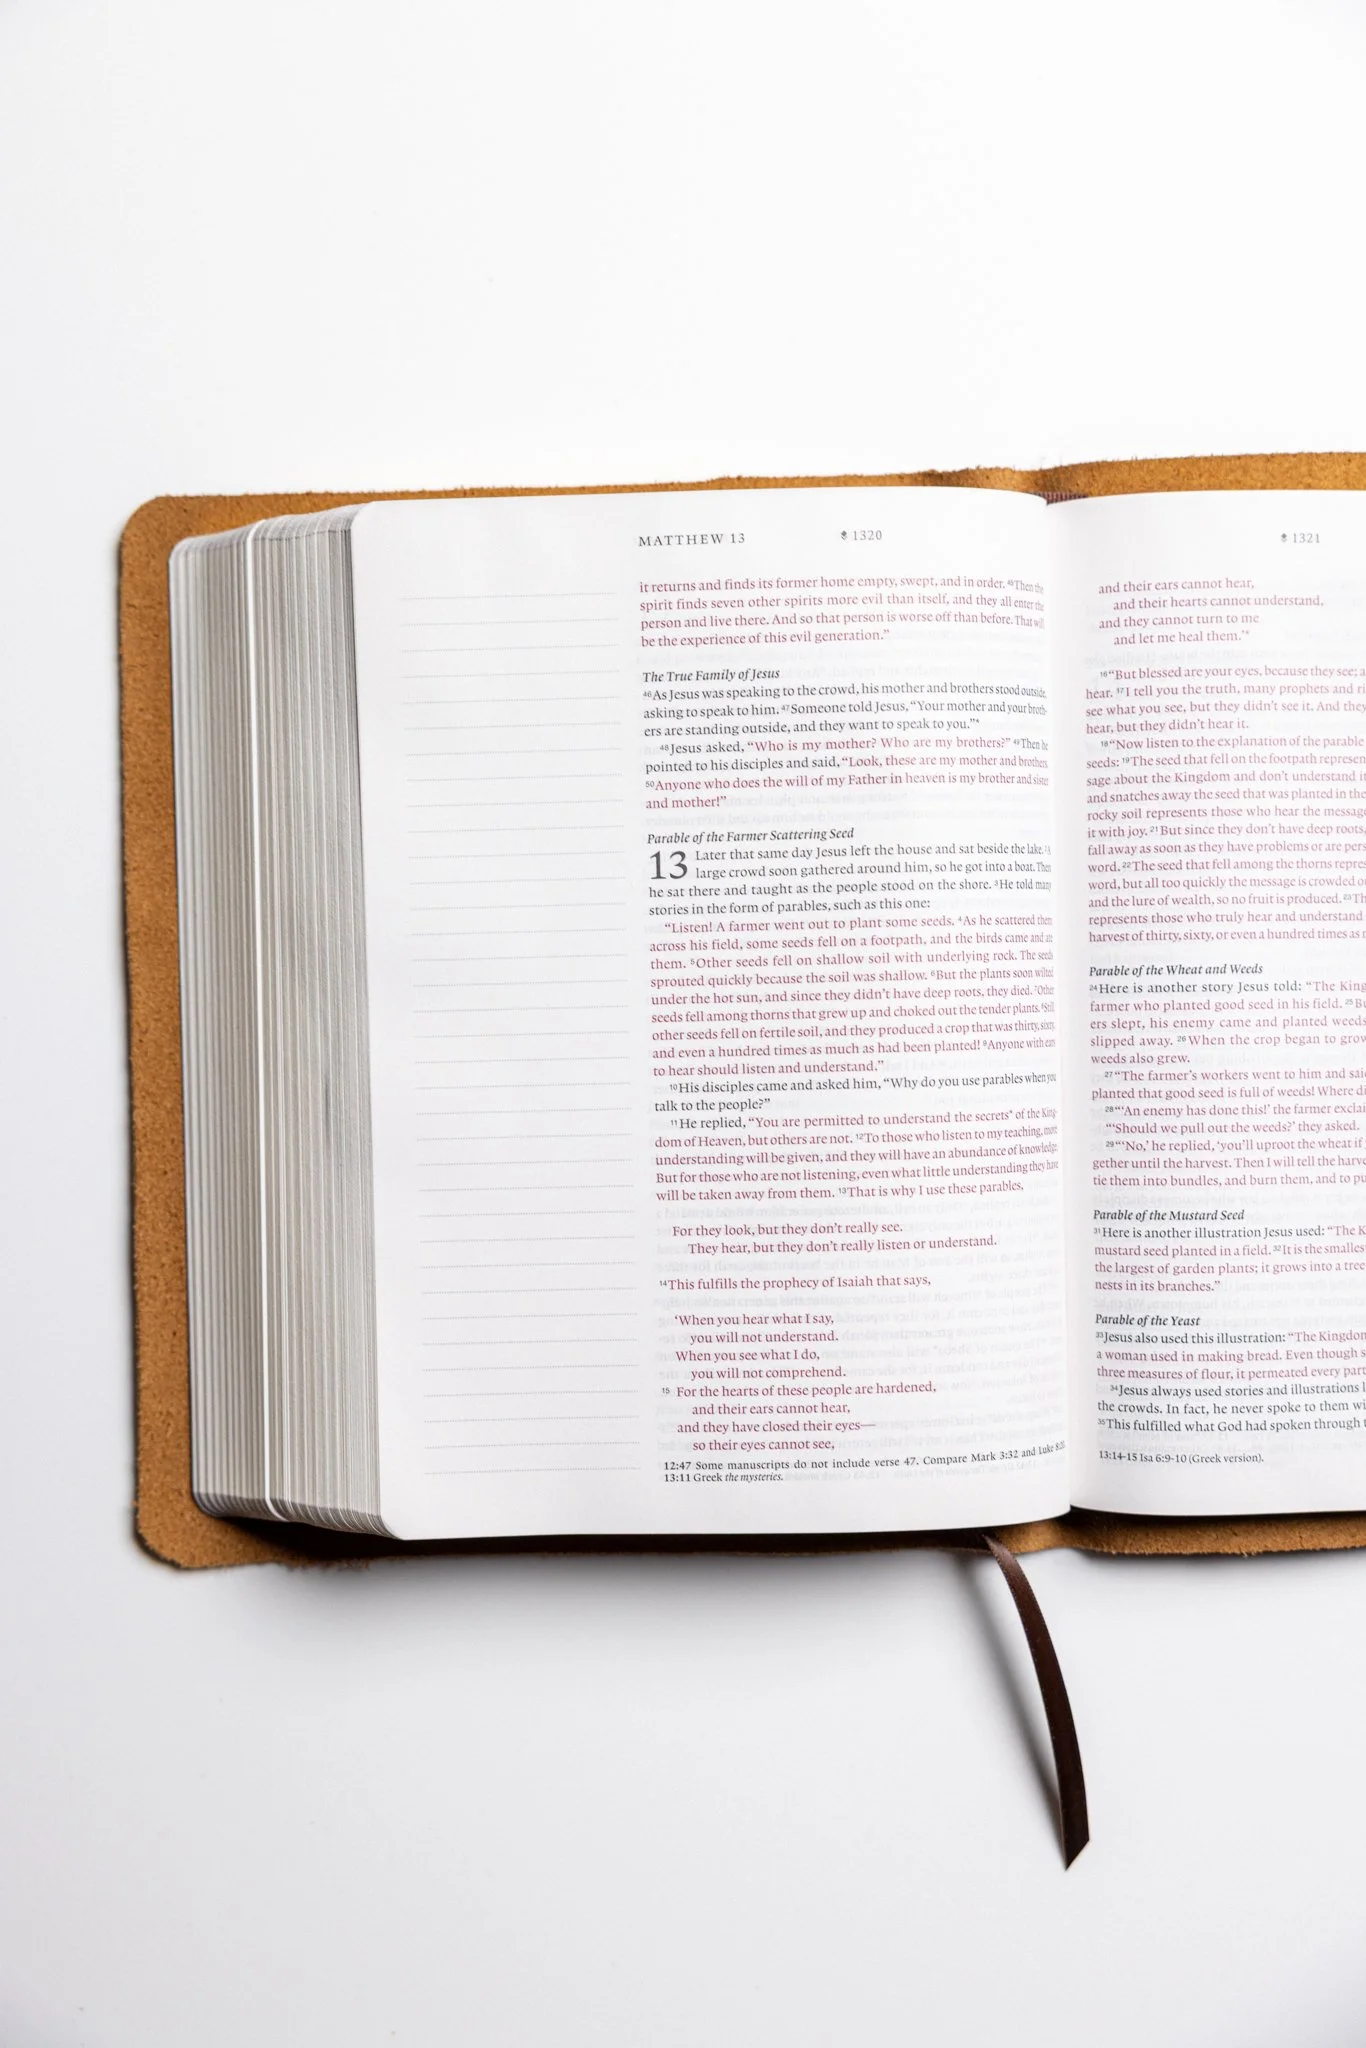 MATTHEW 13 1320
it returns and finds its former home empty, swept, and in order. 45Then the
spirit finds seven other spirits more evil than itself, and they all enter the
person and live there. And so that person is worse off than before. That will
be the experience of this evil generation.”
The True Family of Jesus
46As Jesus was speaking to the crowd, his mother and brothers stood outside,
asking to speak to him. 47Someone told Jesus, “Your mother and your broth-
ers are standing outside, and they want to speak to you.”*
48Jesus asked, “Who is my mother? Who are my brothers?” 49Then he
pointed to his disciples and said, “Look, these are my mother and brothers.
50Anyone who does the will of my Father in heaven is my brother and sister
and mother!”
Parable of the Farmer Scattering Seed
13 Later that same day Jesus left the house and sat beside the lake. 2A
large crowd soon gathered around him, so he got into a boat. Then
he sat there and taught as the people stood on the shore. 3He told many
stories in the form of parables, such as this one:
“Listen! A farmer went out to plant some seeds. 4As he scattered them
across his field, some seeds fell on a footpath, and the birds came and ate
them. 5Other seeds fell on shallow soil with underlying rock. The seeds
sprouted quickly because the soil was shallow. 6But the plants soon wilted
under the hot sun, and since they didn’t have deep roots, they died. 7Other
seeds fell among thorns that grew up and choked out the tender plants. 8Still
other seeds fell on fertile soil, and they produced a crop that was thirty, sixty,
and even a hundred times as much as had been planted! 9Anyone with ears
to hear should listen and understand.”
10His disciples came and asked him, “Why do you use parables when you
talk to the people?”
11He replied, “You are permitted to understand the secrets* of the King-
dom of Heaven, but others are not. 12To those who listen to my teaching, more
understanding will be given, and they will have an abundance of knowledge.
But for those who are not listening, even what little understanding they have
will be taken away from them. 13That is why I use these parables,
For they look, but they don’t really see.
They hear, but they don’t really listen or understand.
14This fulfills the prophecy of Isaiah that says,
‘When you hear what I say,
you will not understand.
When you see what I do,
you will not comprehend.
15 For the hearts of these people are hardened,
and their ears cannot hear,
and they have closed their eyes—
so their eyes cannot see,
12:47 Some manuscripts do not include verse 47. Compare Mark 3:32 and Luke 8:20.
13:11 Greek the mysteries.
1321
and their ears cannot hear,
and their hearts cannot understand,
and they cannot turn to me
and let me heal them.’*
16“But blessed are your eyes, because they see; a
hear. 17I tell you the truth, many prophets and ri
see what you see, but they didn’t see it. And they
hear, but they didn’t hear it.
18“Now listen to the explanation of the parable
seeds: 19The seed that fell on the footpath represen
sage about the Kingdom and don’t understand it
and snatches away the seed that was planted in the
rocky soil represents those who hear the message
it with joy. 21But since they don’t have deep roots,
fall away as soon as they have problems or are pers
word. 22The seed that fell among the thorns repres
word, but all too quickly the message is crowded o
and the lure of wealth, so no fruit is produced. 23Th
represents those who truly hear and understand
harvest of thirty, sixty, or even a hundred times as m
Parable of the Wheat and Weeds
24Here is another story Jesus told: “The King
farmer who planted good seed in his field. 25Bu
ers slept, his enemy came and planted weeds
slipped away. 26When the crop began to grow
weeds also grew.
27“The farmer’s workers went to him and said
planted that good seed is full of weeds! Where di
28“‘An enemy has done this!’ the farmer exclai
“‘Should we pull out the weeds?’ they asked.
29“‘No,’ he replied, ‘you’ll uproot the wheat if
gether until the harvest. Then I will tell the harve
tie them into bundles, and burn them, and to pu
Parable of the Mustard Seed
31Here is another illustration Jesus used: “The K
mustard seed planted in a field. 32It is the smalles
the largest of garden plants; it grows into a tree
nests in its branches.”
Parable of the Yeast
33Jesus also used this illustration: “The Kingdom
a woman used in making bread. Even though s
three measures of flour, it permeated every part
34Jesus always used stories and illustrations l
the crowds. In fact, he never spoke to them wi
35This fulfilled what God had spoken through t
13:14-15 Isa 6:9-10 (Greek version).